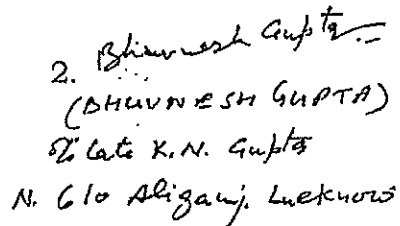 2. Bhuvnesh Gupta
(BHUVNESH GUPTA)
S/o Late K.N. Gupta
N. 6/0 Aliganj. Lucknow